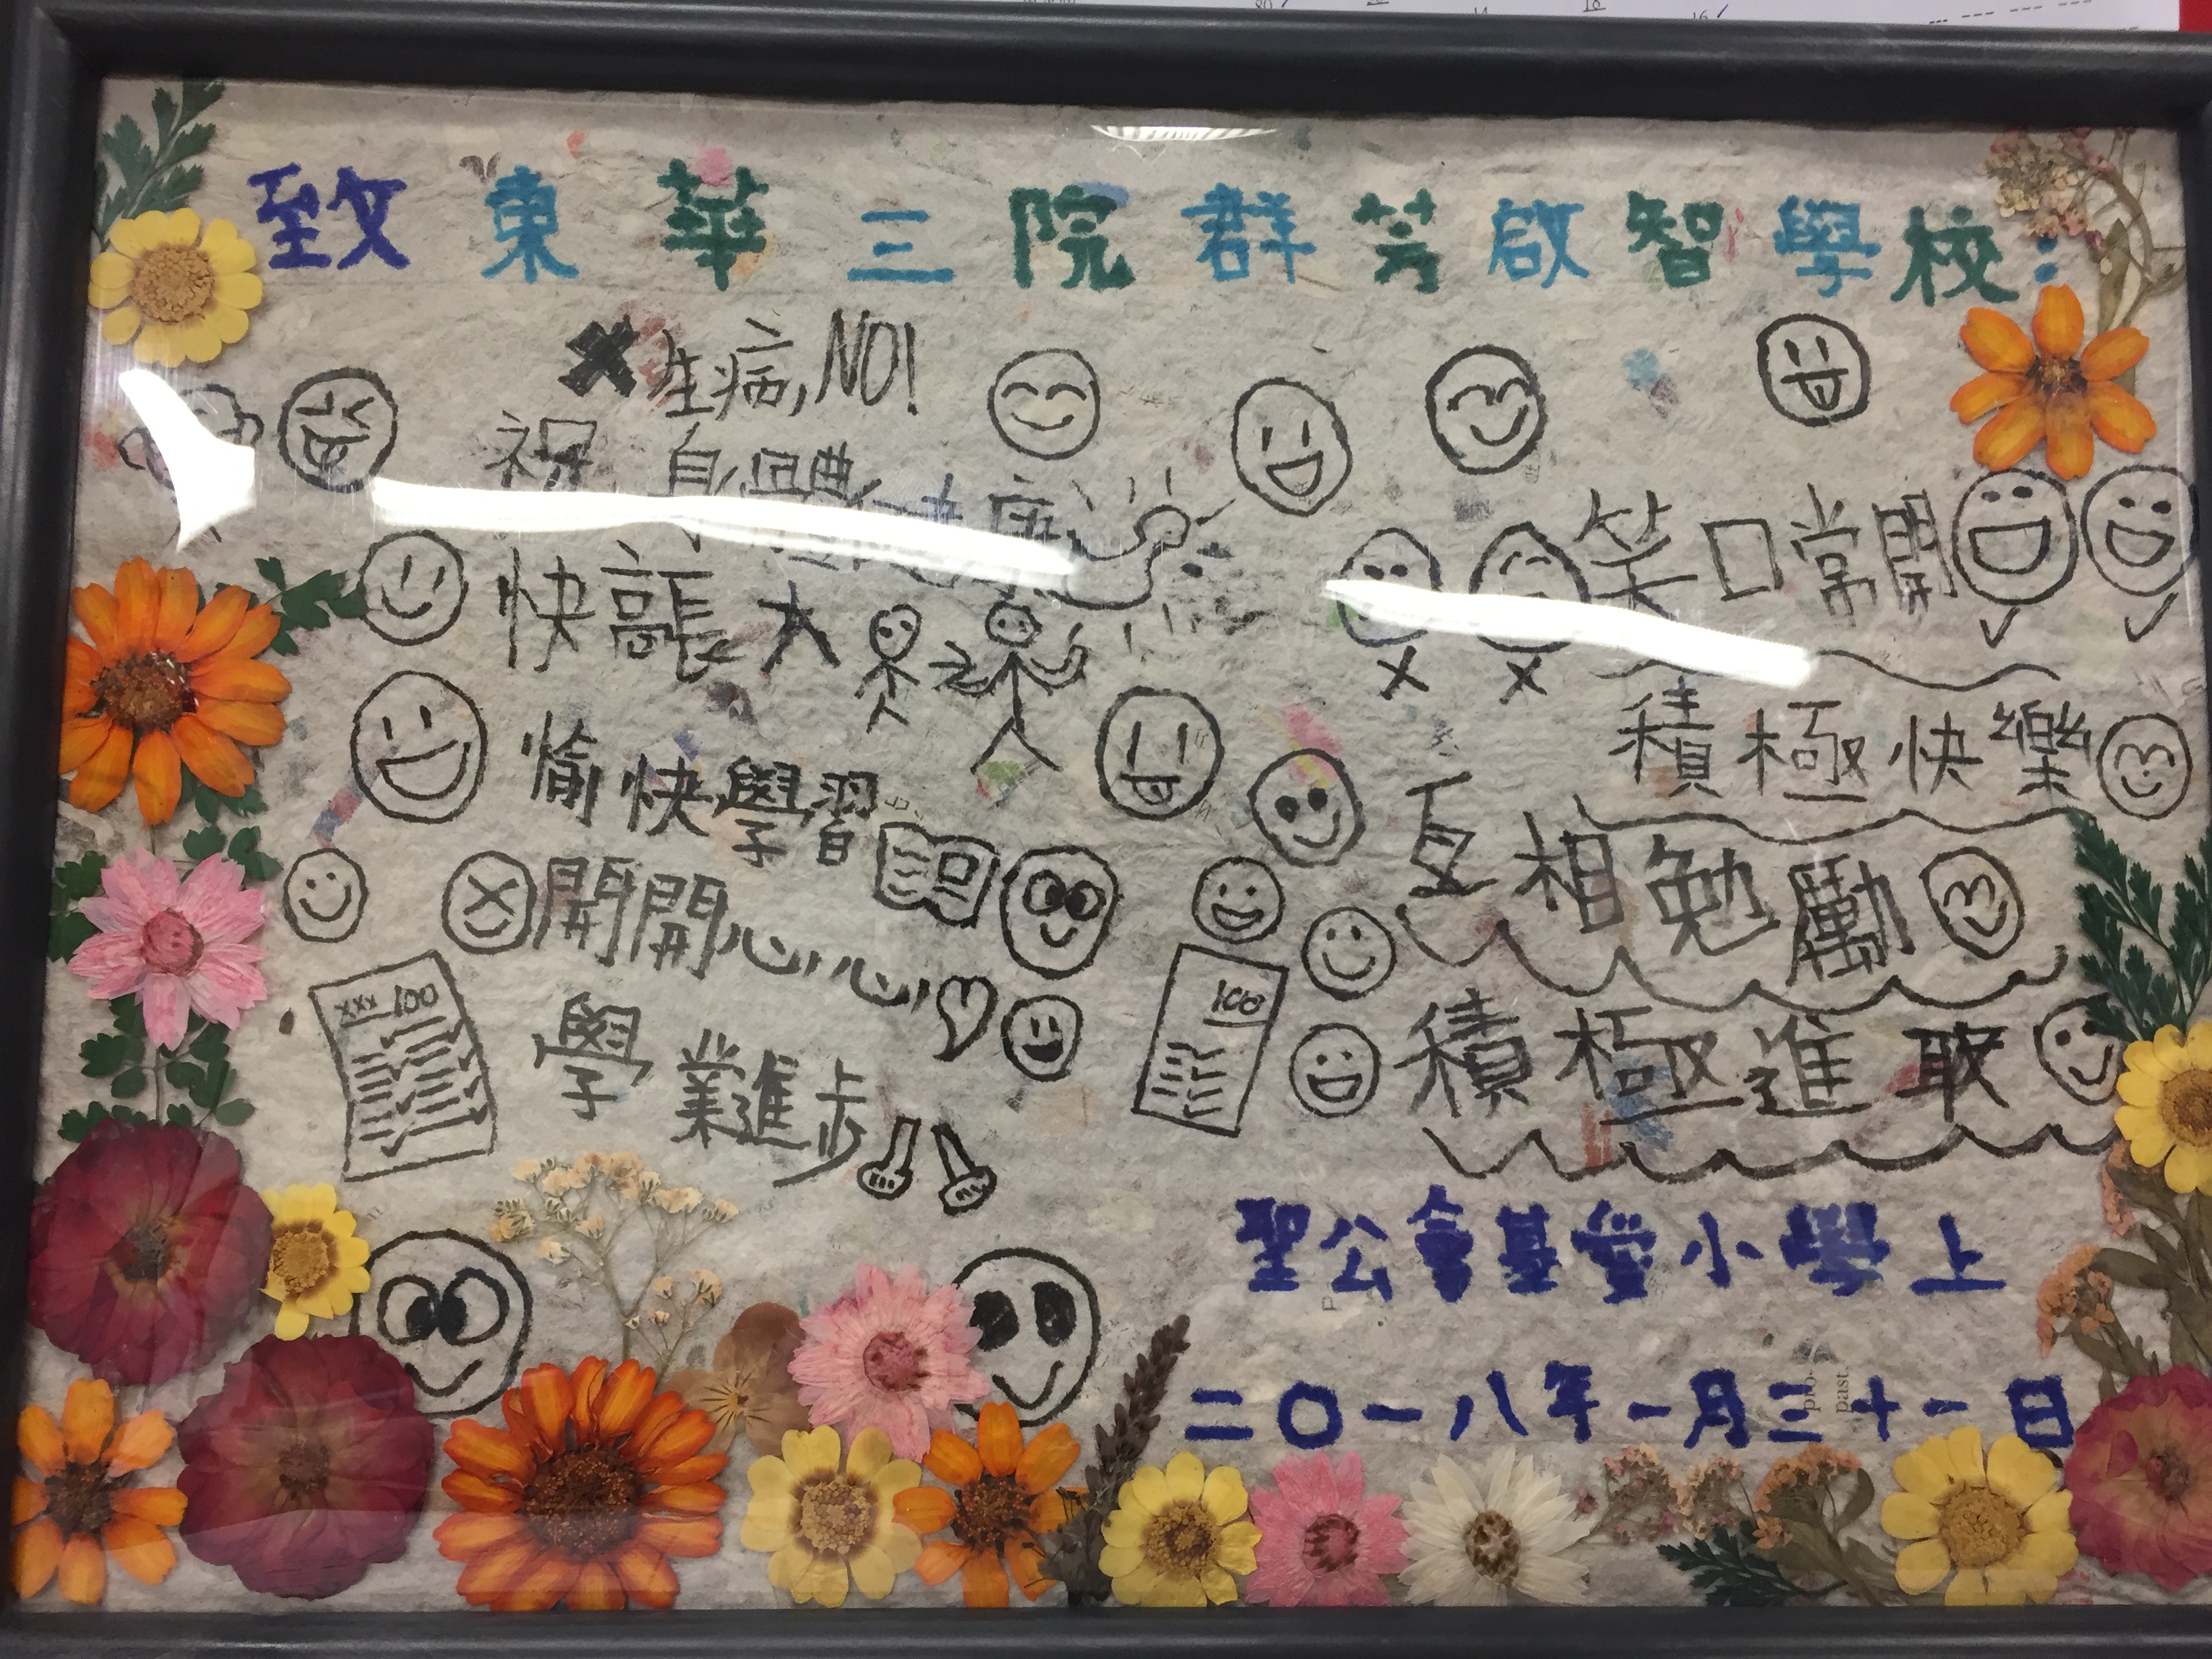 致東華三院群芳啟智學校：
生病,NO!
祝 身體健康
快高長大
愉快學習
開開心心,
學業進步
xxx 100
笑口常開
積極快樂
互相勉勵
100
積極進取
聖公會基愛小學上
二〇一八年一月三十一日
pro-
past